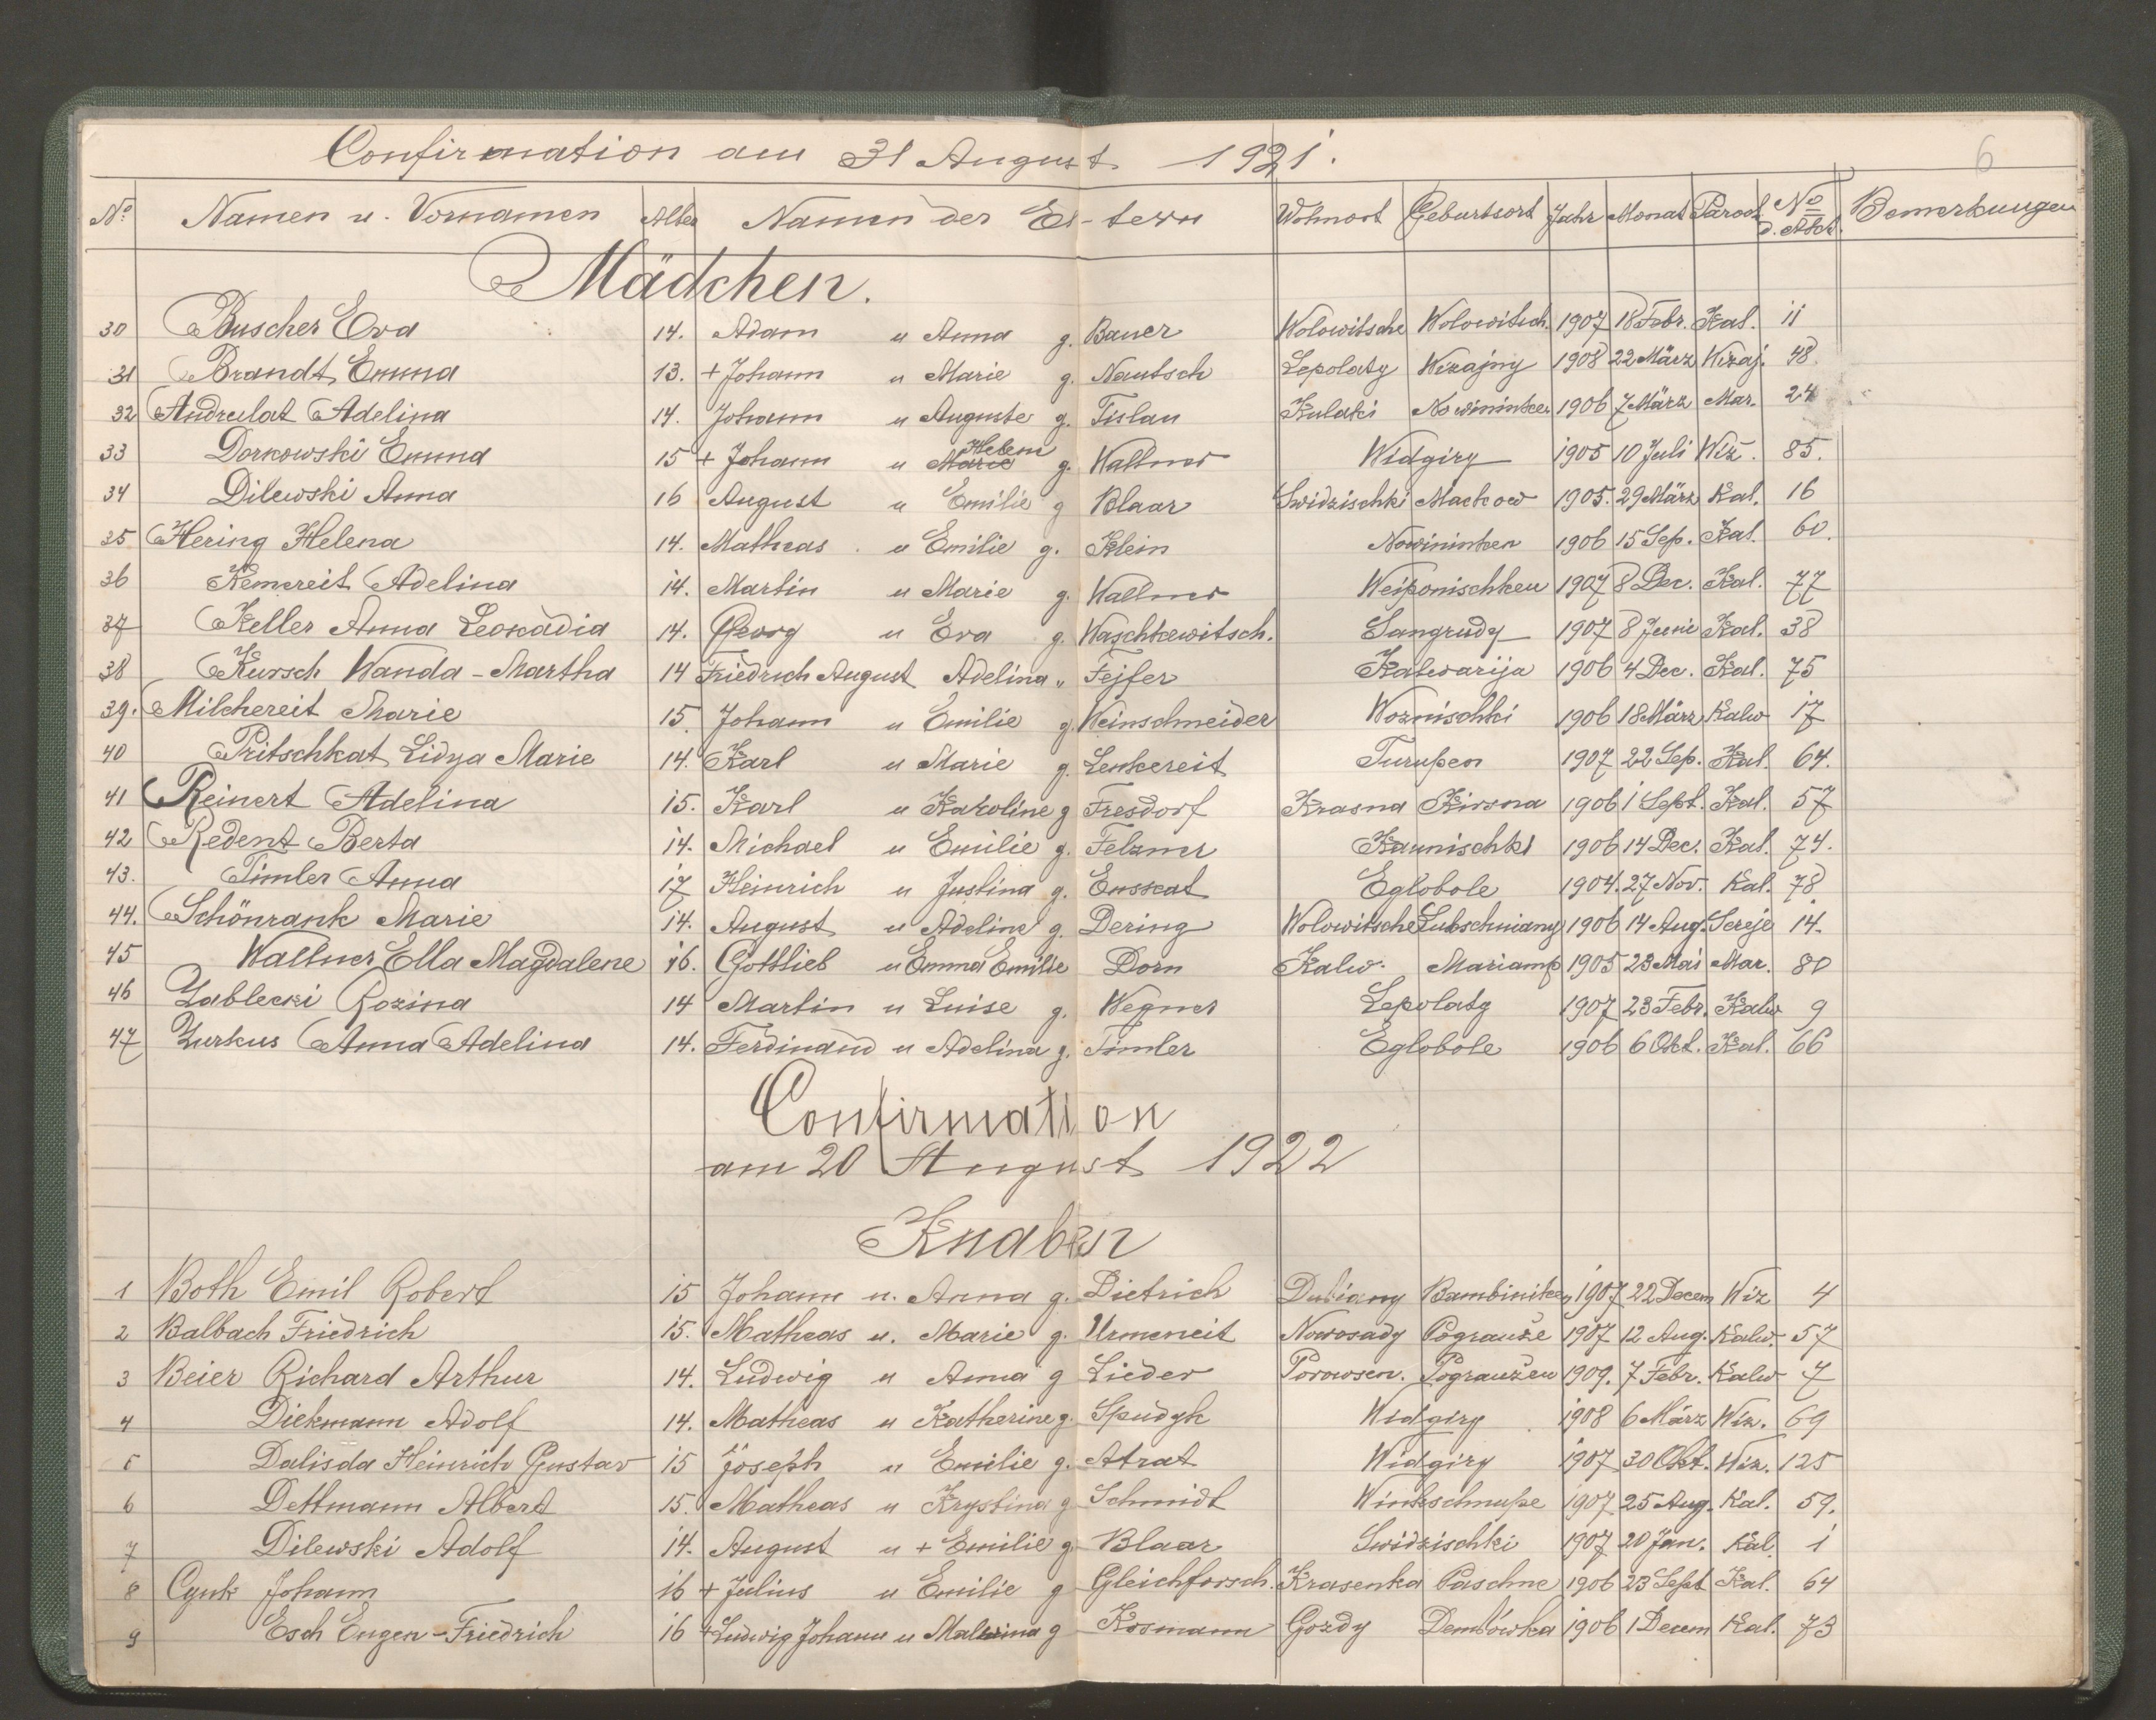 6
Confirmation am 31 August 1921.
No Namen u. Vornamen Alter Namen der El-tern Wohnort Geburtsort Jahr Monat Paroch No d. Akt. Bemerkungen
Mädchen.
30 Buscher Eva 14. Adam u Anna g. Bauer Wolowitsche Wolowitsch. 1907 18 Febr. Kal. 11
31 Brandt Emma 13. + Johann u Marie g. Nautsch Lepolaty Wizajny 1908 22 März Wizaj. 48
32 Andrulat Adelina 14. Johann u Auguste g. Tislau Kulaki Nowininken 1906 7 März Mar. 24
33 Dorkowski Emma 15 + Johann u Marie Helene g. Wallner Widgiry 1905 10 Juli Wiz. 85.
34 Dilewski Anna 16 August u Emilie g Blaar Swidzischki Mackow 1905. 29 März Kal. 16
35 Hering Helena 14. Matheas u Emilie g. Klein Nowininken 1906 15 Sep. Kal. 60.
36 Kemereit Adelina 14. Martin u Marie g. Wallner Weiponischken 1907 8 Dec. Kal. 77
37 Keller Anna Leokadia 14. Georg u Eva g. Waschkewitsch. Sangrudy 1907 8 Juni Kal. 38
38 Kursch Wanda-Martha 14 Friedrich August Adelina " Fejfer Kalwarija 1906 4 Dec. Kal. 75
39. Milchereit Marie 15. Johann u Emilie g. Weinschneider Woznischki 1906 18 März Kalw 17
40 Pritschkat Lidya Marie 14. Karl u Marie g. Lenkereit Turupen 1907 22 Sep. Kal. 64.
41 Reinert Adelina 15. Karl u Karoline g Fresdorf Krasna Kirsna 1906 1 Sept. Kal. 57
42 Redent Berta 14. Michael u Emilie g. Felzner Kaunischki 1906 14 Dec. Kal. 74.
43. Timler Anna 17 Heinrich u Justina g. Ensseat Eglobole 1904. 27 Nov. Kal. 78.
44. Schönrank Marie 14. August u Adeline g. Dering Wolowitsche Lubschniany 1906 14 Aug. Sereje 14.
45 Wallner Ella Magdalene 16. Gottlieb u Emma Emilie Dorn Kalw. Mariamp 1905 23 Mai Mar. 80
46 Zablecki Rozina 14 Martin u Luise g. Wegner Lepolaty 1907 23 Febr. Kalw 9
47 Zurkus Anna Adelina 14. Ferdinand u Adelina g. Timler Eglobole 1906 6 Okt. Kal. 66
Confirmation
am 20 August 1922
Knaben
1 Both Emil Robert 15 Johann u. Anna g. Dietrich Dubiany Bambiniken 1907 22 Decem Wiz 4
2 Balbach Friedrich 15. Matheas u. Marie g. Urmeneit Nowosady Pograuže 1907 12 Aug. Kalw. 57
3 Beier Richard Arthur 14. Ludwig u Anna g Lieder Porowsen. Pograužen 1909. 7 Febr. Kalw 7
4 Diekmann Adolf 14. Matheas u Katherine g. Spudyk Widgiry 1908 6 März Wiz. 69
5 Dalisda Heinrich Gustav 15 Joseph u Emilie g. Atrat Widgiry 1907 30 Okt. Wiz. 125
6 Dettmann Albert 15. Matheas u Krystina g Schmidt Winkschnupe 1907 25 Aug. Kal. 59.
7 Dilewski Adolf 14. August u + Emilie g Blaar Swidzischki 1907 20 Jan. Kal. 1
8 Cynk Johann 16 + Julius u Emilie g Gleichforsch. Krasenka Paschne 1906 23 Sept Kal. 64
9 Esch Eugen-Friedrich 16 + Ludwig Johann u Malwina g Kosmann Gozdy Dembówka 1906 1 Decem Kal. 73